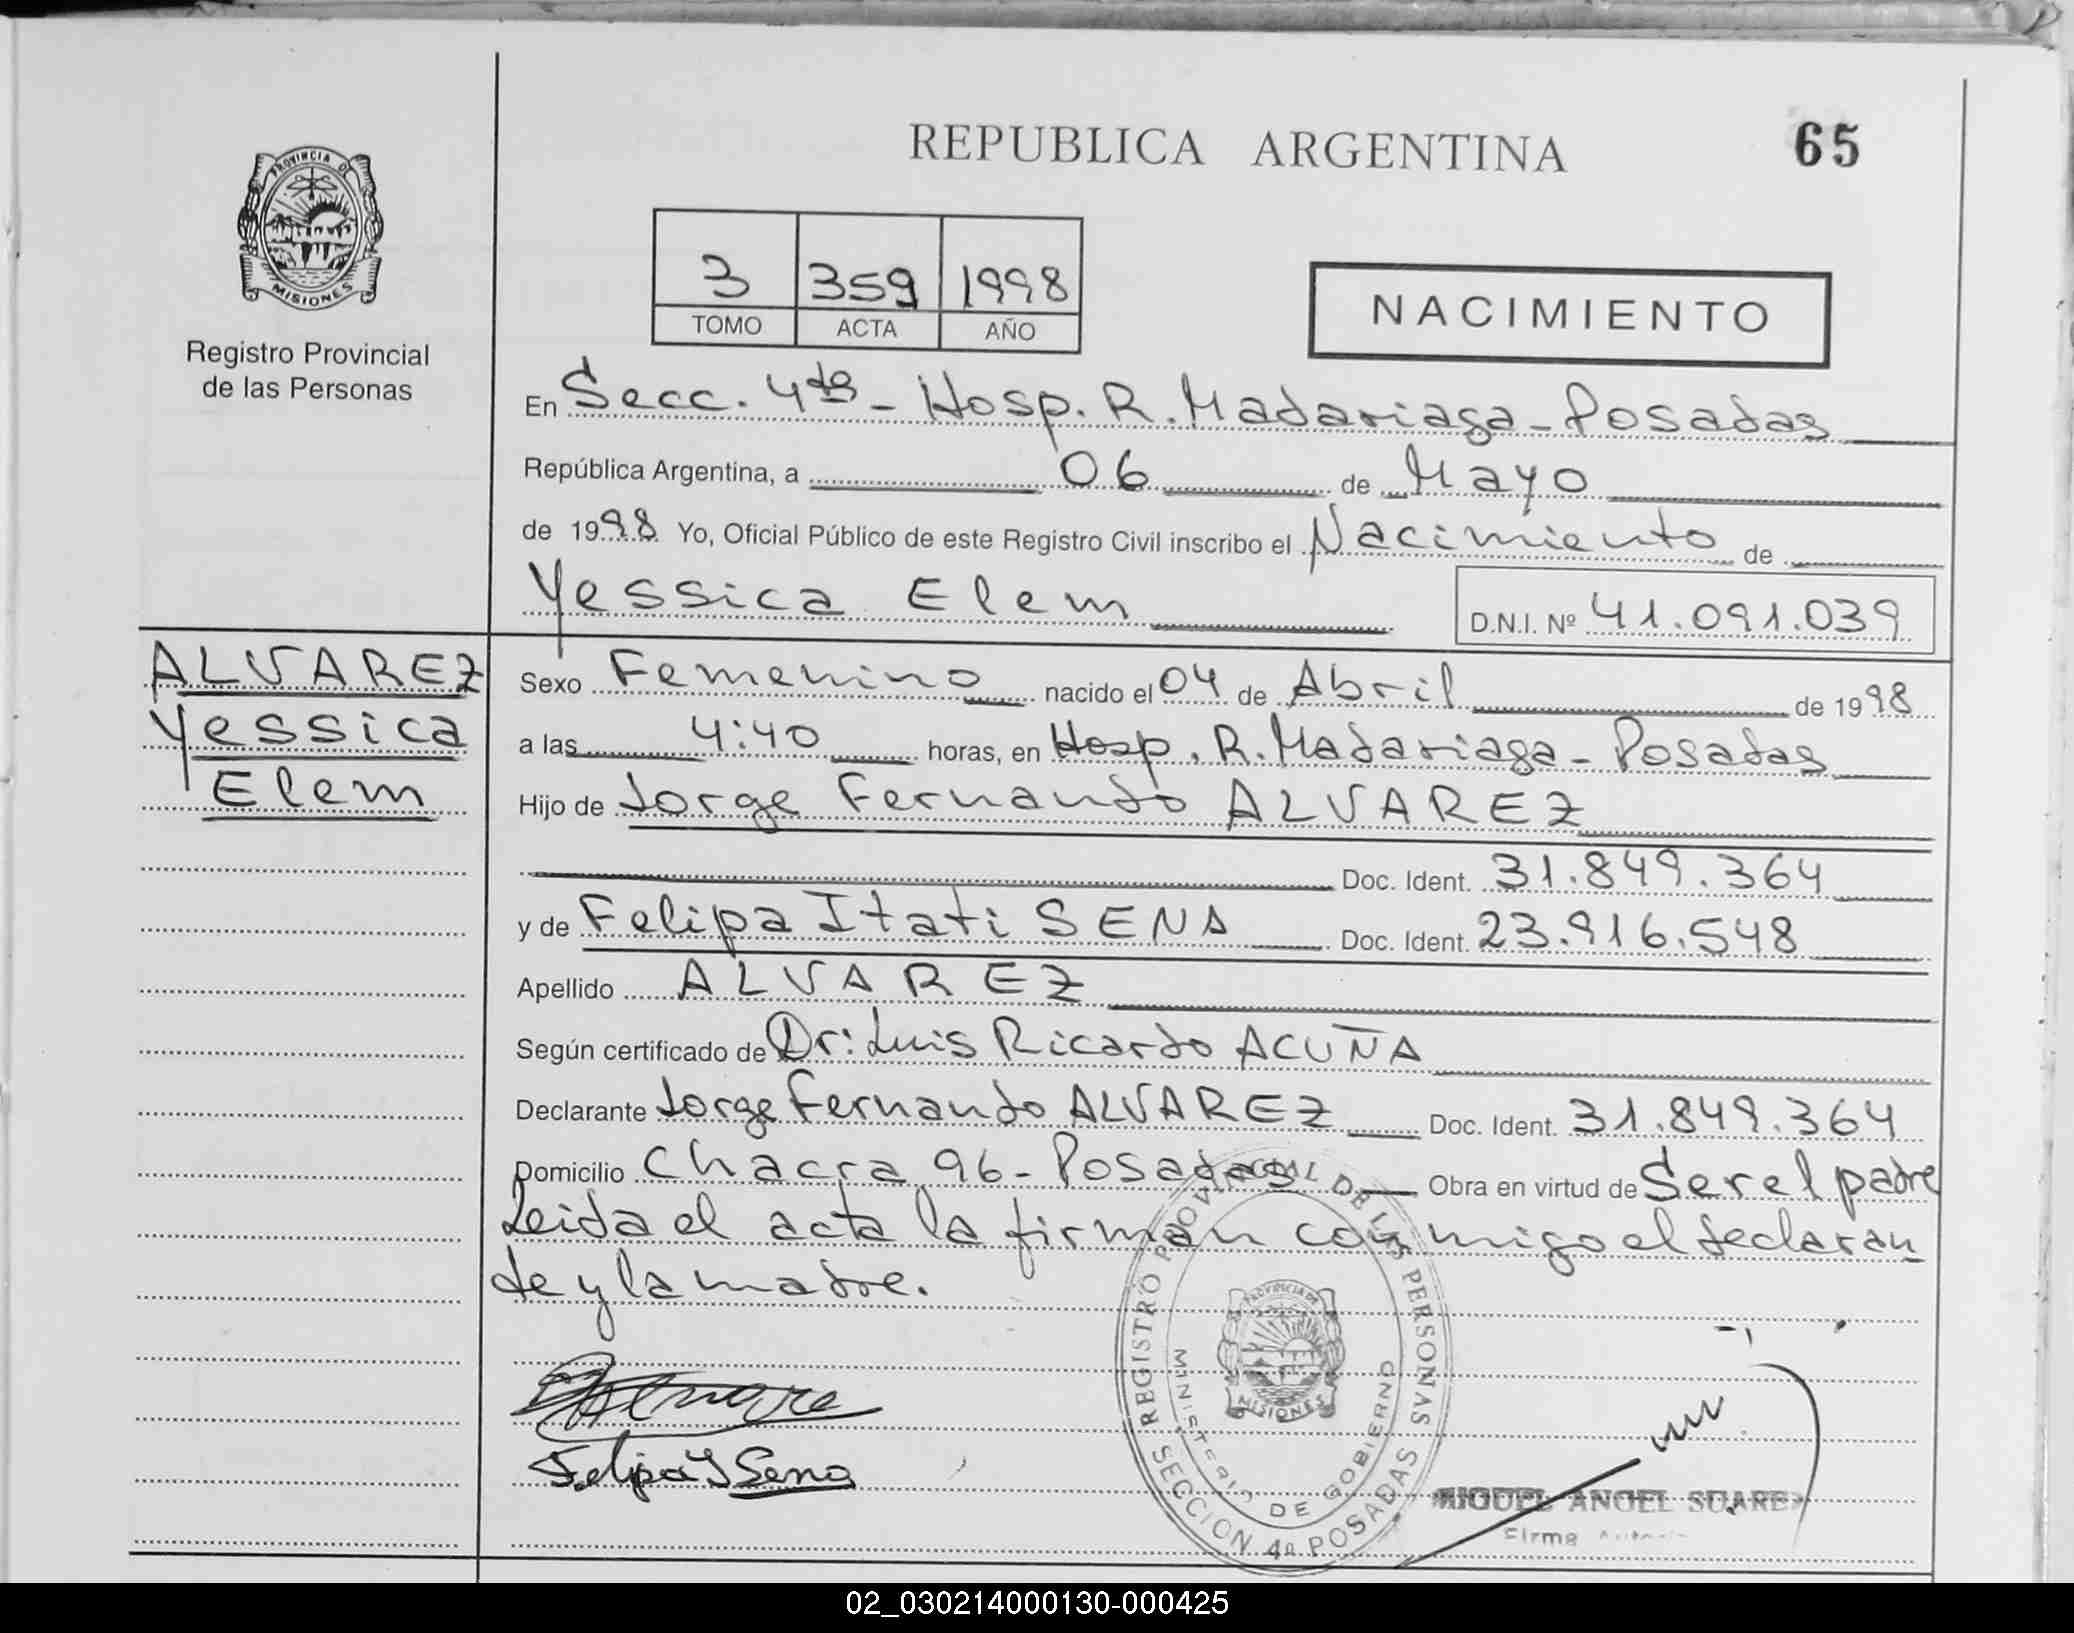 REPUBLICA ARGENTINA
65
PROVINCIA DE
MISIONES
Registro Provincial
de las Personas
3 359 1998
TOMO ACTA AÑO
NACIMIENTO
En Secc. 4ta - Hosp. R. Madariaga - Posadas
República Argentina, a 06 de Mayo
de 1998 Yo, Oficial Público de este Registro Civil inscribo el Nacimiento de
Yessica Elem
D.N.I. Nº 41.091.039
ALVAREZ
Yessica
Elem
Sexo Femenino nacido el 04 de Abril de 1998
a las 4:40 horas, en Hosp. R. Madariaga - Posadas
Hijo de Jorge Fernando ALVAREZ
Doc. Ident. 31.849.364
y de Felipa Itati SENA Doc. Ident. 23.916.548
Apellido ALVAREZ
Según certificado de Dr: Luis Ricardo ACUÑA
Declarante Jorge Fernando ALVAREZ Doc. Ident. 31.849.364
Domicilio Chacra 96 - Posadas Obra en virtud de Ser el padre
Leida el acta la firman conmigo el declaran
te y la madre.
REGISTRO PROVINCIAL DE LAS PERSONAS
MINISTERIO DE GOBIERNO
PROVINCIA DE
MISIONES
SECCION 4a POSADAS
Felipa I Sena
MIGUEL ANGEL SUAREZ
Firma
02_030214000130-000425